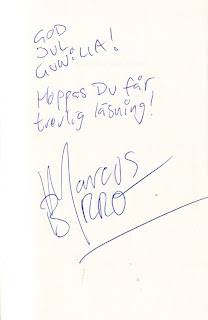 GOD
JUL
GUNILLA!
Hoppas Du får
trevlig läsning!
Marcus
BIRRO